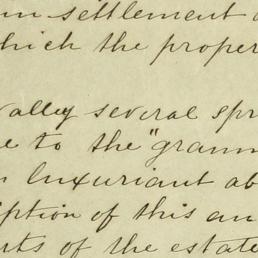 settlement
which the proper
valley several spr
to the "gramm
luxuriant ab
ption of this an
rts of the estate